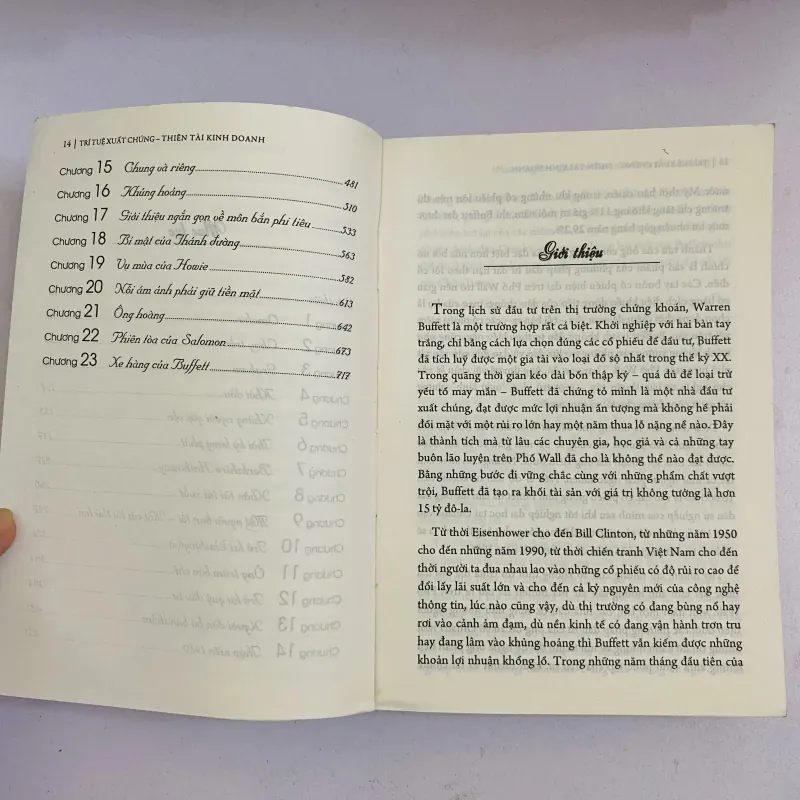 14 | TRÍ TUỆ XUẤT CHÚNG – THIÊN TÀI KINH DOANH
Chương 15 Chung và riêng 481
Chương 16 Khủng hoảng 510
Chương 17 Giới thiệu ngắn gọn về môn bắn phi tiêu 533
Chương 18 Bí mật của Thánh đường 563
Chương 19 Vụ mùa của Howie 582
Chương 20 Nỗi ám ảnh phải giữ tiền mặt 613
Chương 21 Ông hoàng 642
Chương 22 Phiên tòa của Salomon 673
Chương 23 Xe hàng của Buffett 717
Giới thiệu
Trong lịch sử đầu tư trên thị trường chứng khoán, Warren
Buffett là một trường hợp rất cá biệt. Khởi nghiệp với hai bàn tay
trắng, chỉ bằng cách lựa chọn đúng các cổ phiếu để đầu tư, Buffett
đã tích luỹ được một gia tài vào loại đồ sộ nhất trong thế kỷ XX.
Trong quãng thời gian kéo dài bốn thập kỷ – quá đủ để loại trừ
yếu tố may mắn – Buffett đã chứng tỏ mình là một nhà đầu tư
xuất chúng, đạt được mức lợi nhuận ấn tượng mà không hề phải
đối mặt với một rủi ro lớn hay một năm thua lỗ nặng nề nào. Đây
là thành tích mà từ lâu các chuyên gia, học giả và cả những tay
buôn lão luyện trên Phố Wall đã cho là không thể nào đạt được.
Bằng những bước đi vững chắc cùng với những phẩm chất vượt
trội, Buffett đã tạo ra khối tài sản với giá trị không tưởng là hơn
15 tỷ đô-la.
Từ thời Eisenhower cho đến Bill Clinton, từ những năm 1950
cho đến những năm 1990, từ thời chiến tranh Việt Nam cho đến
thời người ta đua nhau lao vào những cổ phiếu có độ rủi ro cao để
đổi lấy lãi suất lớn và cho đến cả kỷ nguyên mới của công nghệ
thông tin, lúc nào cũng vậy, dù thị trường có đang bùng nổ hay
rơi vào cảnh ảm đạm, dù nền kinh tế có đang vận hành trơn tru
hay đang lâm vào khủng hoảng thì Buffett vẫn kiếm được những
khoản lợi nhuận khổng lồ. Trong những năm tháng đầu tiên của